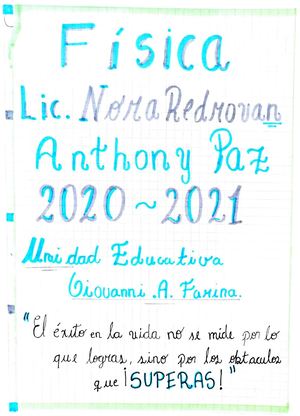 Física
Lic. Nora Redrovan
Anthony Paz
2020 ~ 2021
Unidad Educativa
Giovanni .A. Farina.
"El éxito en la vida no se mide por lo
que logras, sino por los obstaculos
que ¡SUPERAS!"